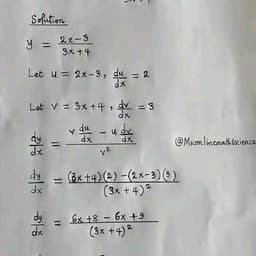 Solution
y = 2x-3 / 3x+4
Let u = 2x-3, du/dx = 2
Let v = 3x+4, dv/dx = 3
dy/dx = (v du/dx - u dv/dx) / v²
dy/dx = (3x+4)(2) - (2x-3)(3) / (3x+4)²
dy/dx = 6x+8 - 6x+9 / (3x+4)²